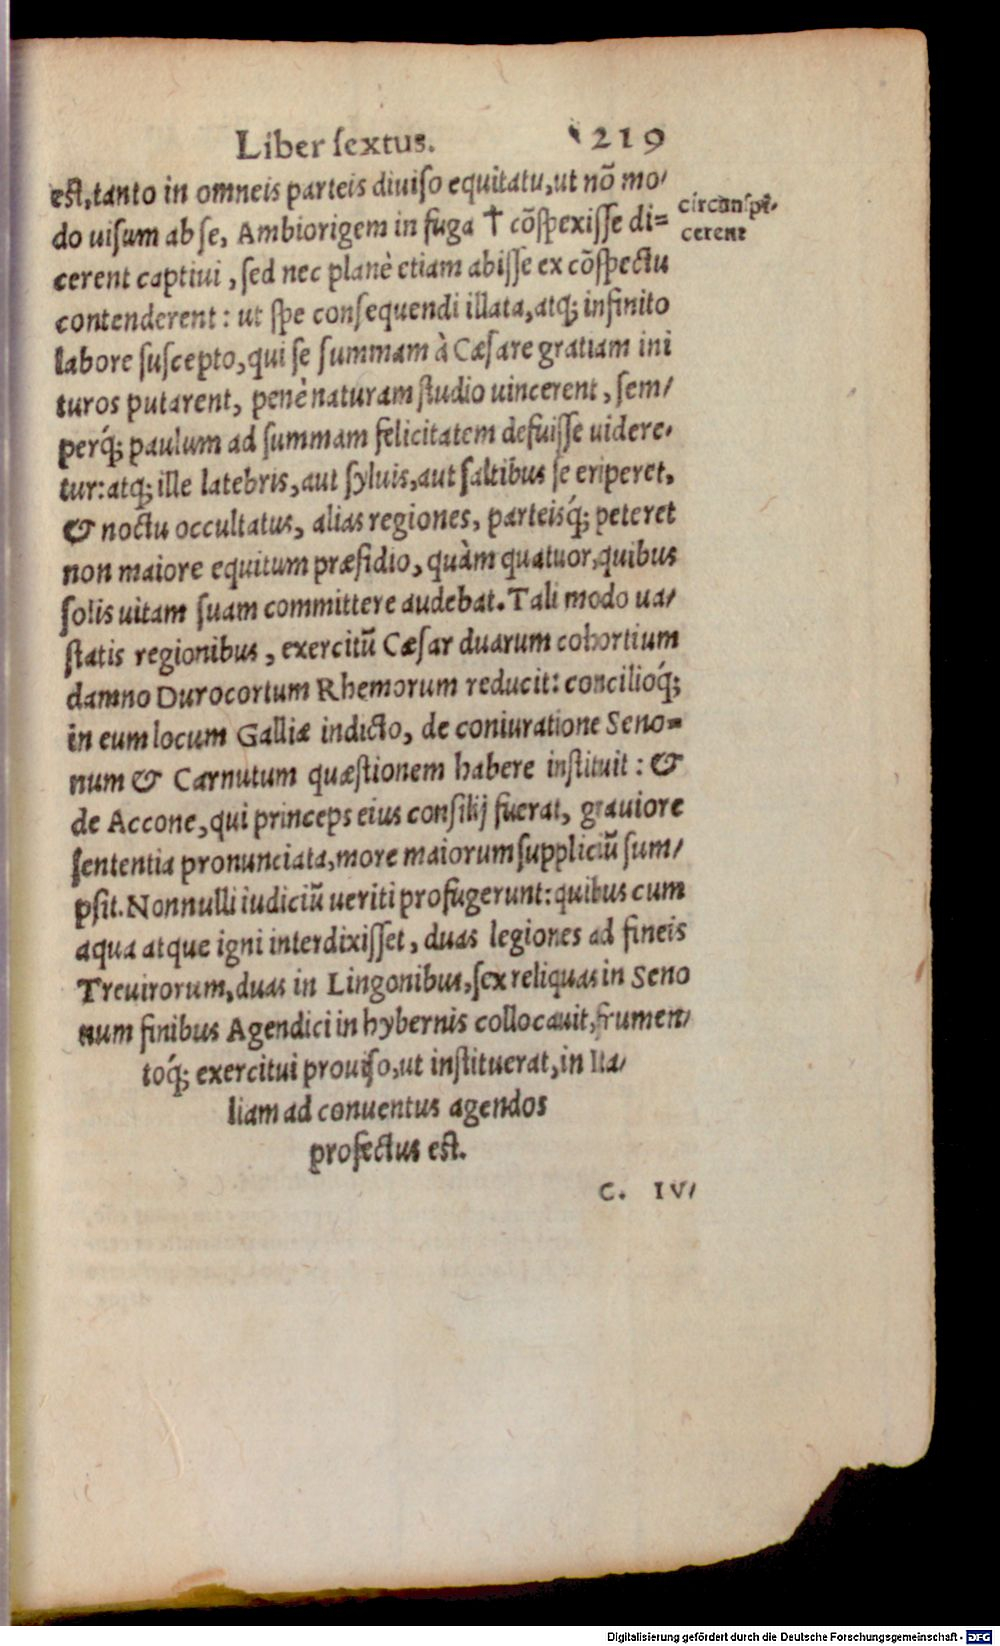 Liber sextus. 219
est, tanto in omneis parteis diuiso equitatu, ut nõ mo/
do uisum ab se, Ambiorigem in fuga † cõspexisse di=
circunspi-
cerent
cerent captiui, sed nec planè etiam abisse ex cõspectu
contenderent: ut spe consequendi illata, atq; infinito
labore suscepto, qui se summam à Cæsare gratiam ini
turos putarent, penè naturam studio uincerent, sem/
perq́; paulum ad summam felicitatem defuisse uidere-
tur: atq; ille latebris, aut syluis, aut saltibus se eriperet,
& noctu occultatus, alias regiones, parteisq́; peteret
non maiore equitum præsidio, quàm quatuor, quibus
solis uitam suam committere audebat. Tali modo ua/
statis regionibus, exercitũ Cæsar duarum cohortium
damno Durocortum Rhemorum reducit: concilioq́;
in eum locum Galliæ indicto, de coniuratione Seno=
num & Carnutum quæstionem habere instituit: &
de Accone, qui princeps eius consilij fuerat, grauiore
sententia pronunciata, more maiorum suppliciũ sum/
psit. Nonnulli iudiciũ ueriti profugerunt: quibus cum
aqua atque igni interdixisset, duas legiones ad fineis
Treuirorum, duas in Lingonibus, sex reliquas in Seno
num finibus Agendici in hybernis collocauit, frumen/
toq́; exercitui prouiso, ut instituerat, in Ita/
liam ad conuentus agendos
profectus est.
C. IV/
Digitalisierung gefördert durch die Deutsche Forschungsgemeinschaft - DFG